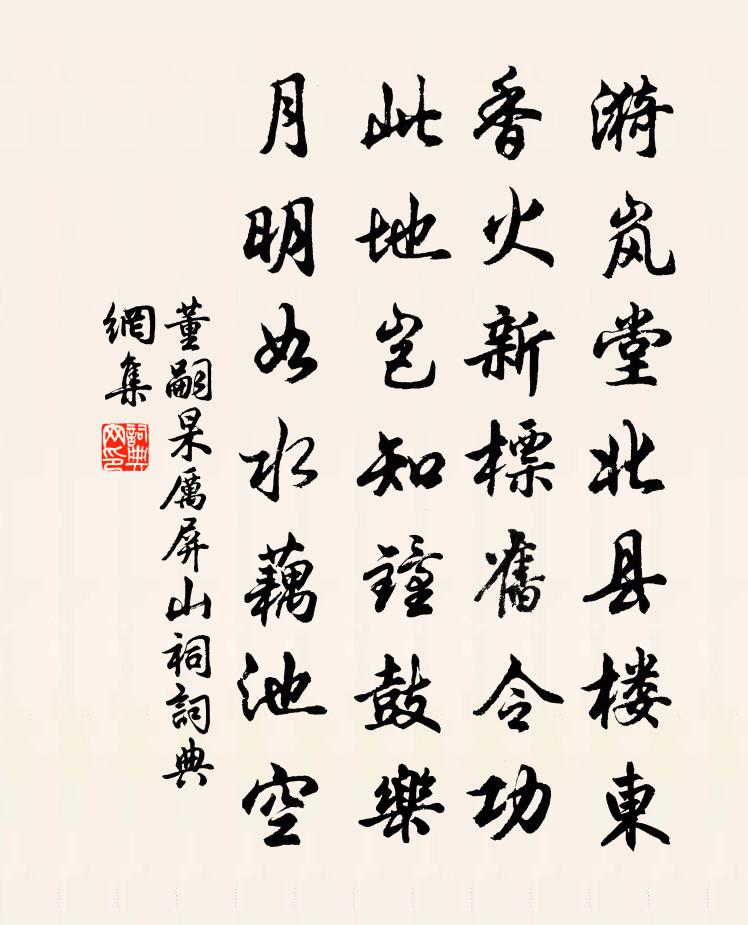 漪岚堂北县楼東
香火新標舊令功
此地岂知鐘鼓樂
月明如水藕池空
董嗣杲厲屏山祠詞典
網集
詞典
网印